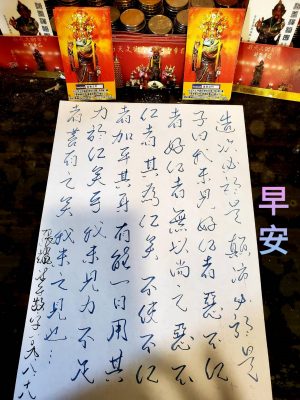 造次必於是顛沛必於是
子曰我未見好仁者惡不仁
者好仁者無以尚之惡不
仁者其為仁矣不使不仁
者加乎其身有能一日用其
力於仁矣乎我未見力不足
者蓋有之矣我未之見也…
早安